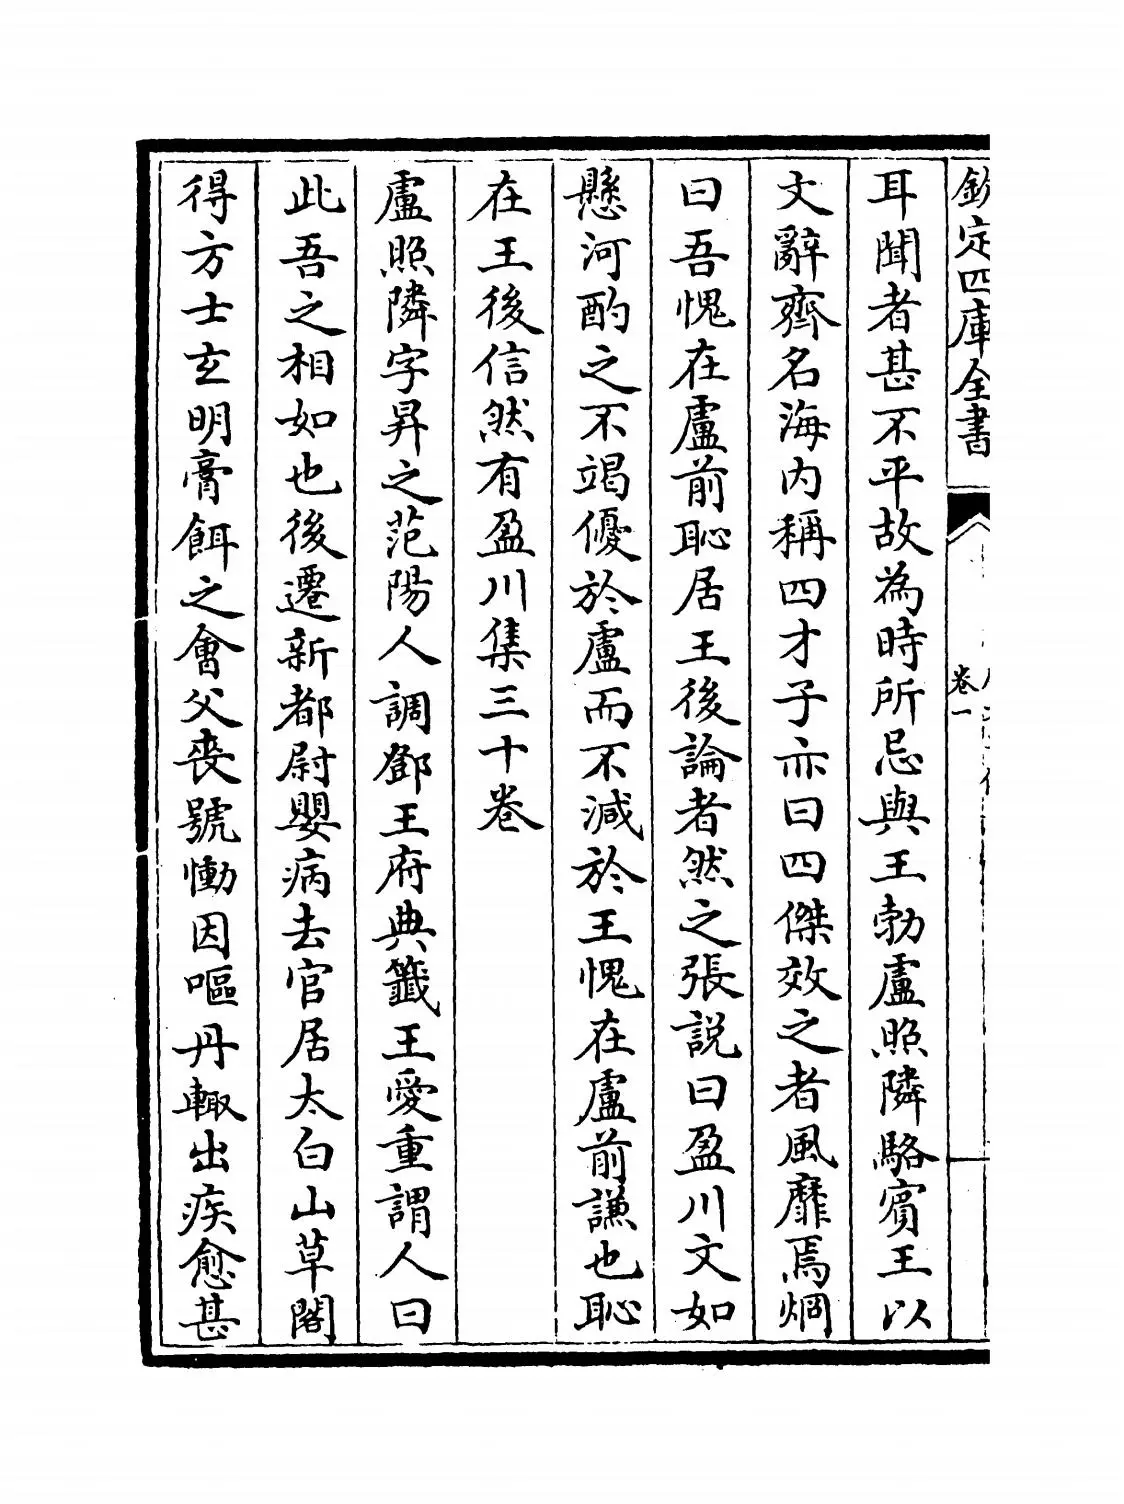 欽定四庫全書
卷一
耳聞者甚不平故為時所忌與王勃盧照隣駱賓王以
文辭齊名海内稱四才子亦曰四傑效之者風靡焉烱
曰吾愧在盧前恥居王後論者然之張説曰盈川文如
懸河酌之不竭優於盧而不減於王愧在盧前謙也恥
在王後信然有盈川集三十卷
盧照隣字昇之范陽人調鄧王府典籤王愛重謂人曰
此吾之相如也後遷新都尉嬰病去官居太白山草閣
得方士玄明膏餌之會父喪號慟因嘔丹輙出疾愈甚